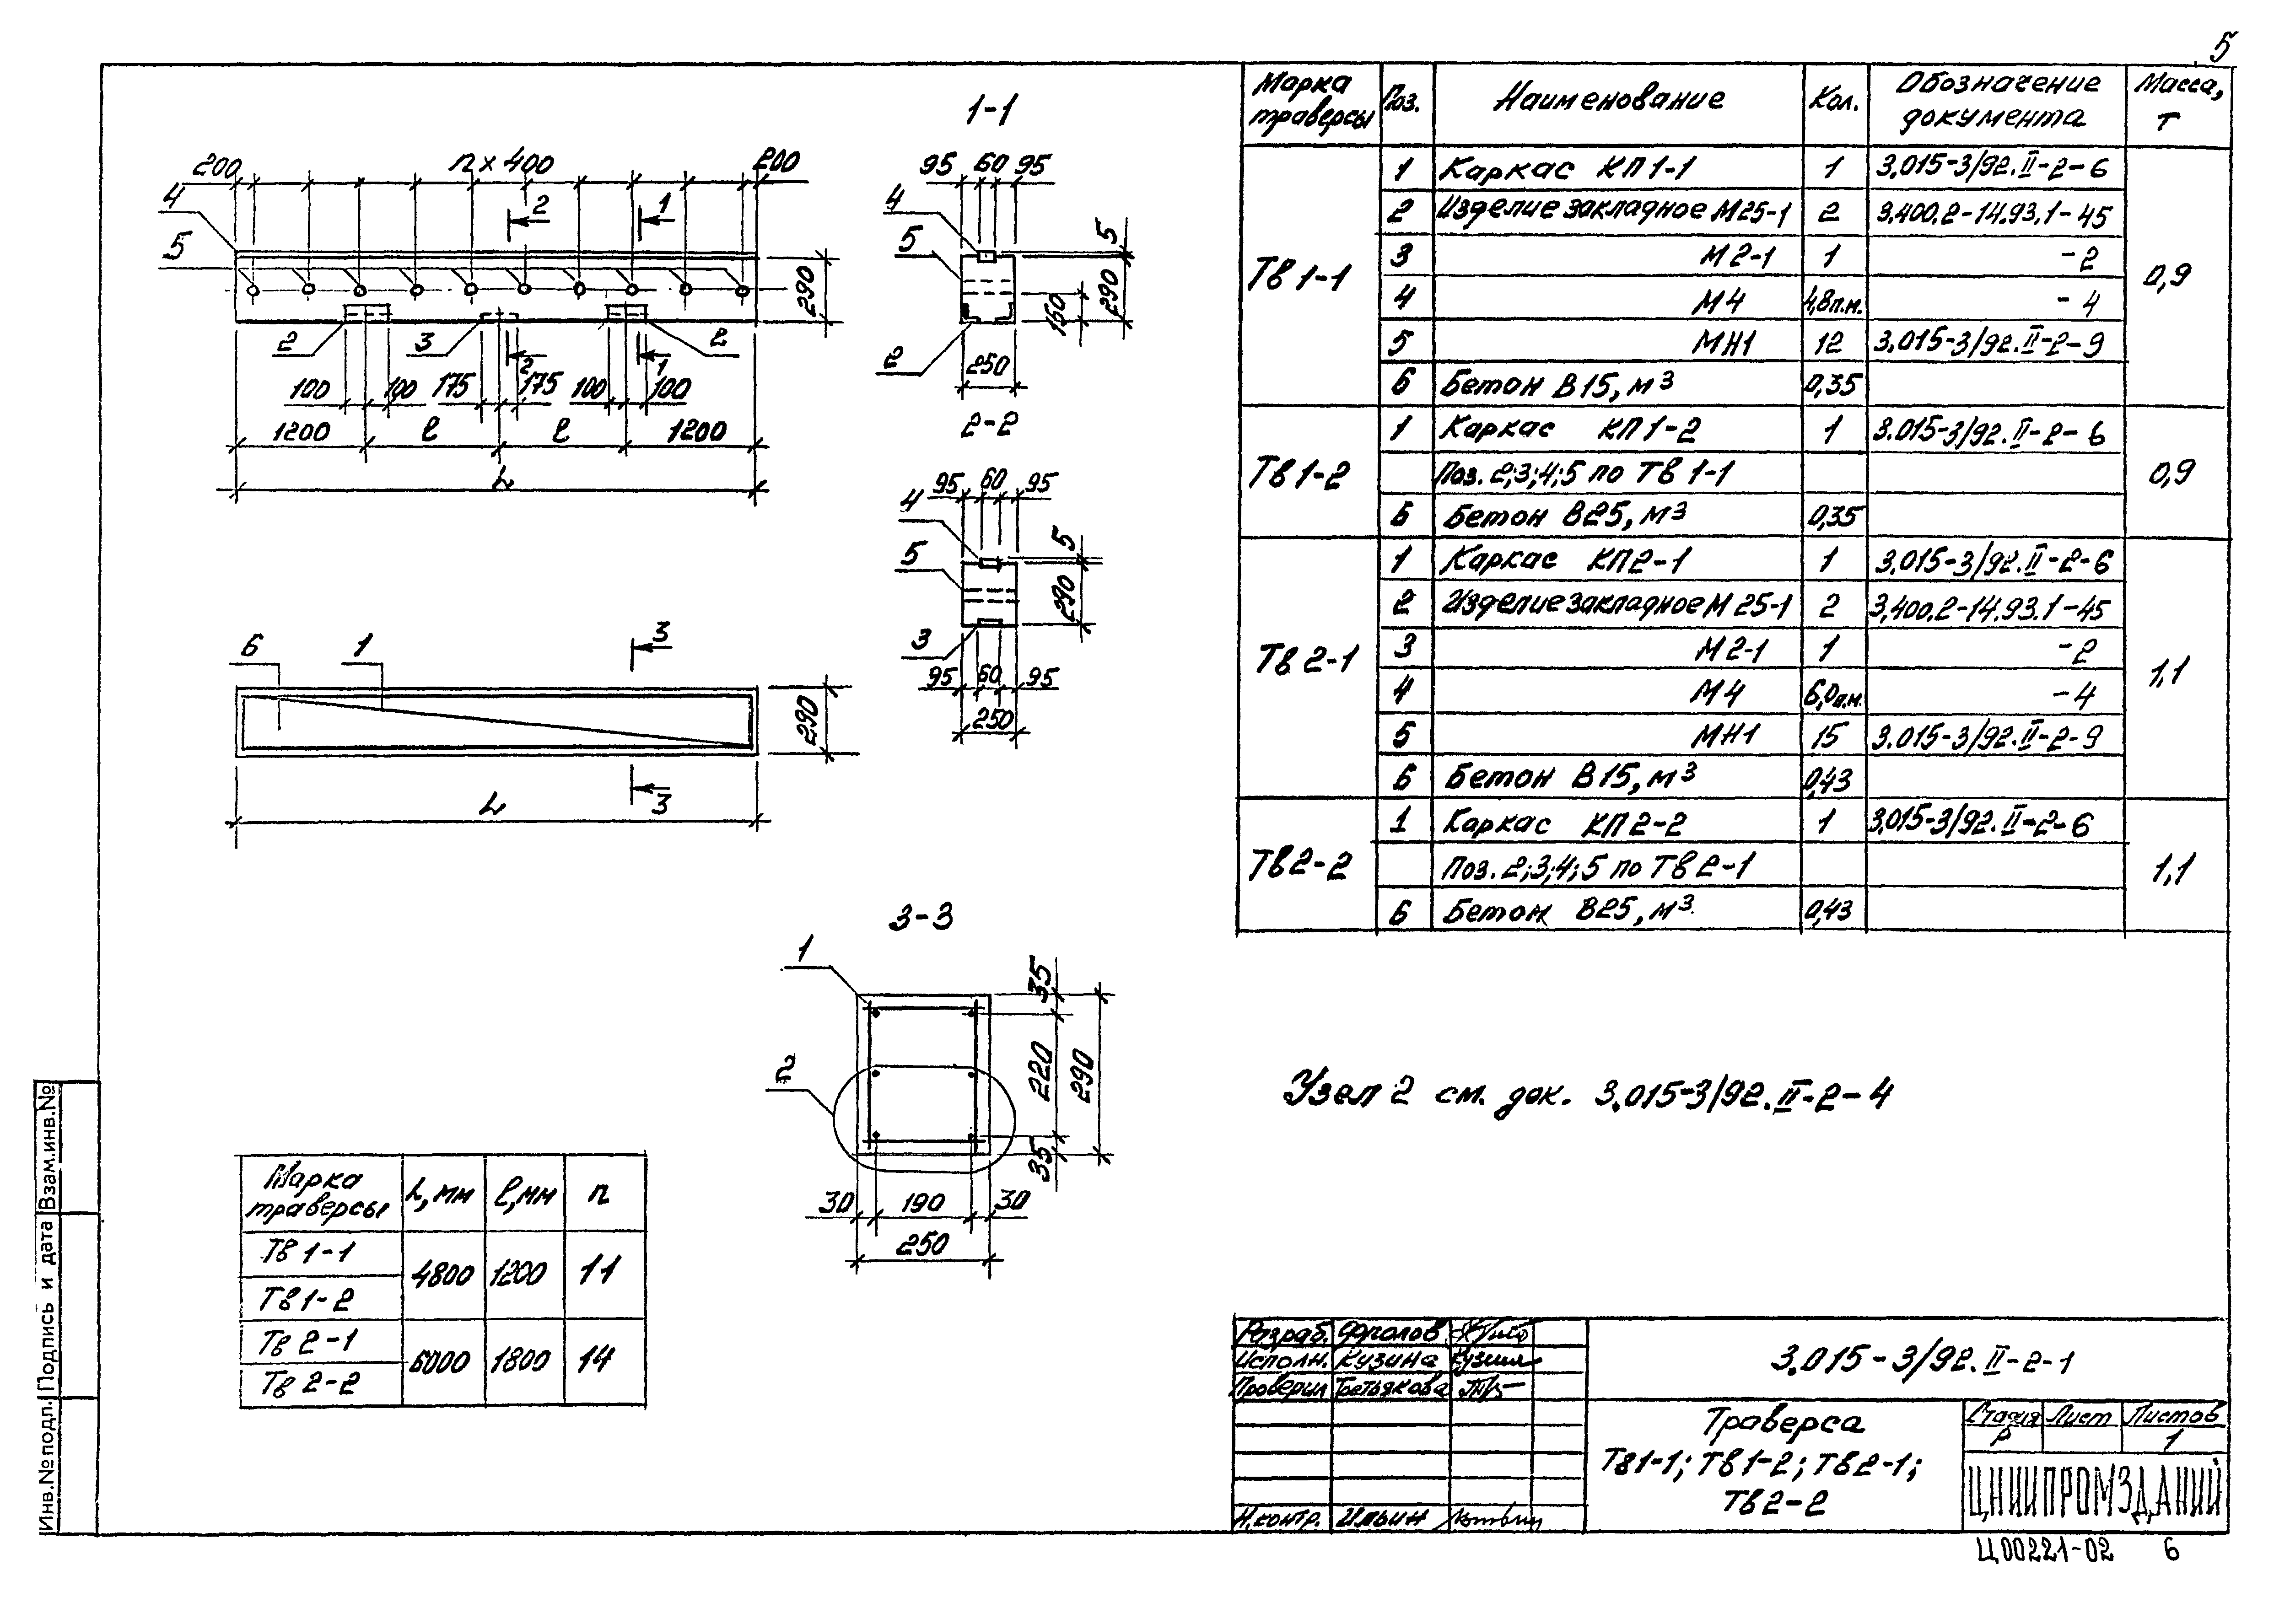 5
1-1
200 n×400 200
4
5
2 1
290
2 3 2
2 1
100 100 175 175 100 100
1200 ℓ ℓ 1200
L
95 60 95
4
5
5
290
150
2
250
2-2
95 60 95
4
5
5
290
3
95 60 95
250
6 1 3
290
3
L
3-3
1
2
35
220
290
35
30 190 30
250
Марка траверсы L, мм ℓ, мм n
Тв 1-1 4800 1200 11
Тв 1-2
Тв 2-1 6000 1800 14
Тв 2-2
Марка траверсы Поз. Наименование Кол. Обозначение документа Масса, т
Тв 1-1 0,9
1 Каркас КП1-1 1 3.015-3/92.II-2-6
2 Изделие закладное М25-1 2 3.400.2-14.93.1-45
3 М2-1 1 -2
4 М4 4,8п.м. -4
5 МН1 12 3.015-3/92.II-2-9
6 Бетон В15, м³ 0,35
Тв 1-2 0,9
1 Каркас КП1-2 1 3.015-3/92.II-2-6
Поз. 2;3;4;5 по Тв 1-1
6 Бетон В25, м³ 0,35
Тв 2-1 1,1
1 Каркас КП2-1 1 3.015-3/92.II-2-6
2 Изделие закладное М25-1 2 3.400.2-14.93.1-45
3 М2-1 1 -2
4 М4 6,0п.м. -4
5 МН1 15 3.015-3/92.II-2-9
6 Бетон В15, м³ 0,43
Тв 2-2 1,1
1 Каркас КП2-2 1 3.015-3/92.II-2-6
Поз. 2;3;4;5 по Тв 2-1
6 Бетон В25, м³ 0,43
Узел 2 см. док. 3.015-3/92.II-2-4
Разраб. Фролов
Исполн. Кузина
Проверил Третьякова
Н.контр. Ильин
3.015-3/92.II-2-1
Траверса
Тв1-1; Тв1-2; Тв2-1;
Тв2-2
Стадия Лист Листов
Р 1
ЦНИИПРОМЗДАНИЙ
Ц00221-02 6
Взам.инв.№
Подпись и дата
Инв.№ подл.